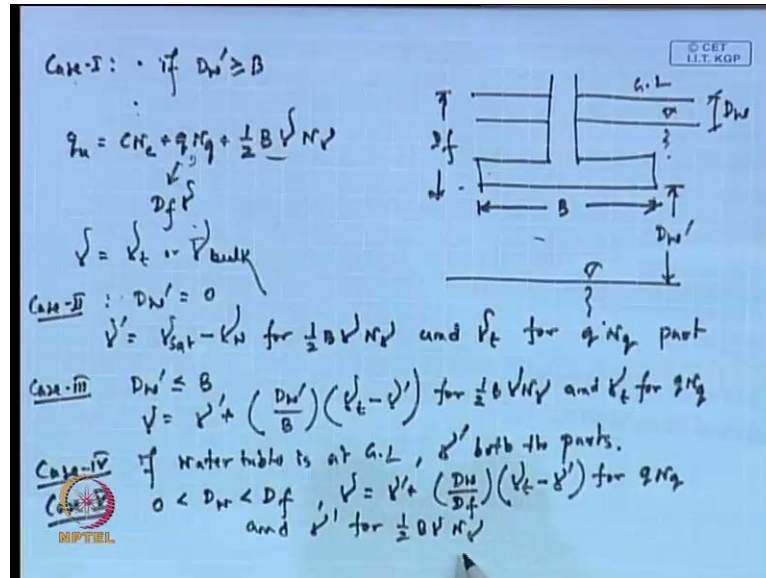 © CET
I.I.T. KGP
Case-I : · if Dw' ≥ B
qu = CNc + qNq + 1/2 B γ Nγ
Df γ
γ = γt or γbulk
G.L
Dw
Df
B
Dw'
Case-II : Dw' = 0
γ' = γsat - γw for 1/2 B γ Nγ and γt for q Nq part
Case-III Dw' ≤ B
γ = γ' + (Dw'/B) (γt - γ') for 1/2 B γ Nγ and γt for qNq
Case-IV If water table is at G.L, γ' both the parts.
Case-V 0 < Dw < Df γ = γ' + (Dw/Df) (γt - γ') for qNq
and γ' for 1/2 B γ Nγ
NPTEL